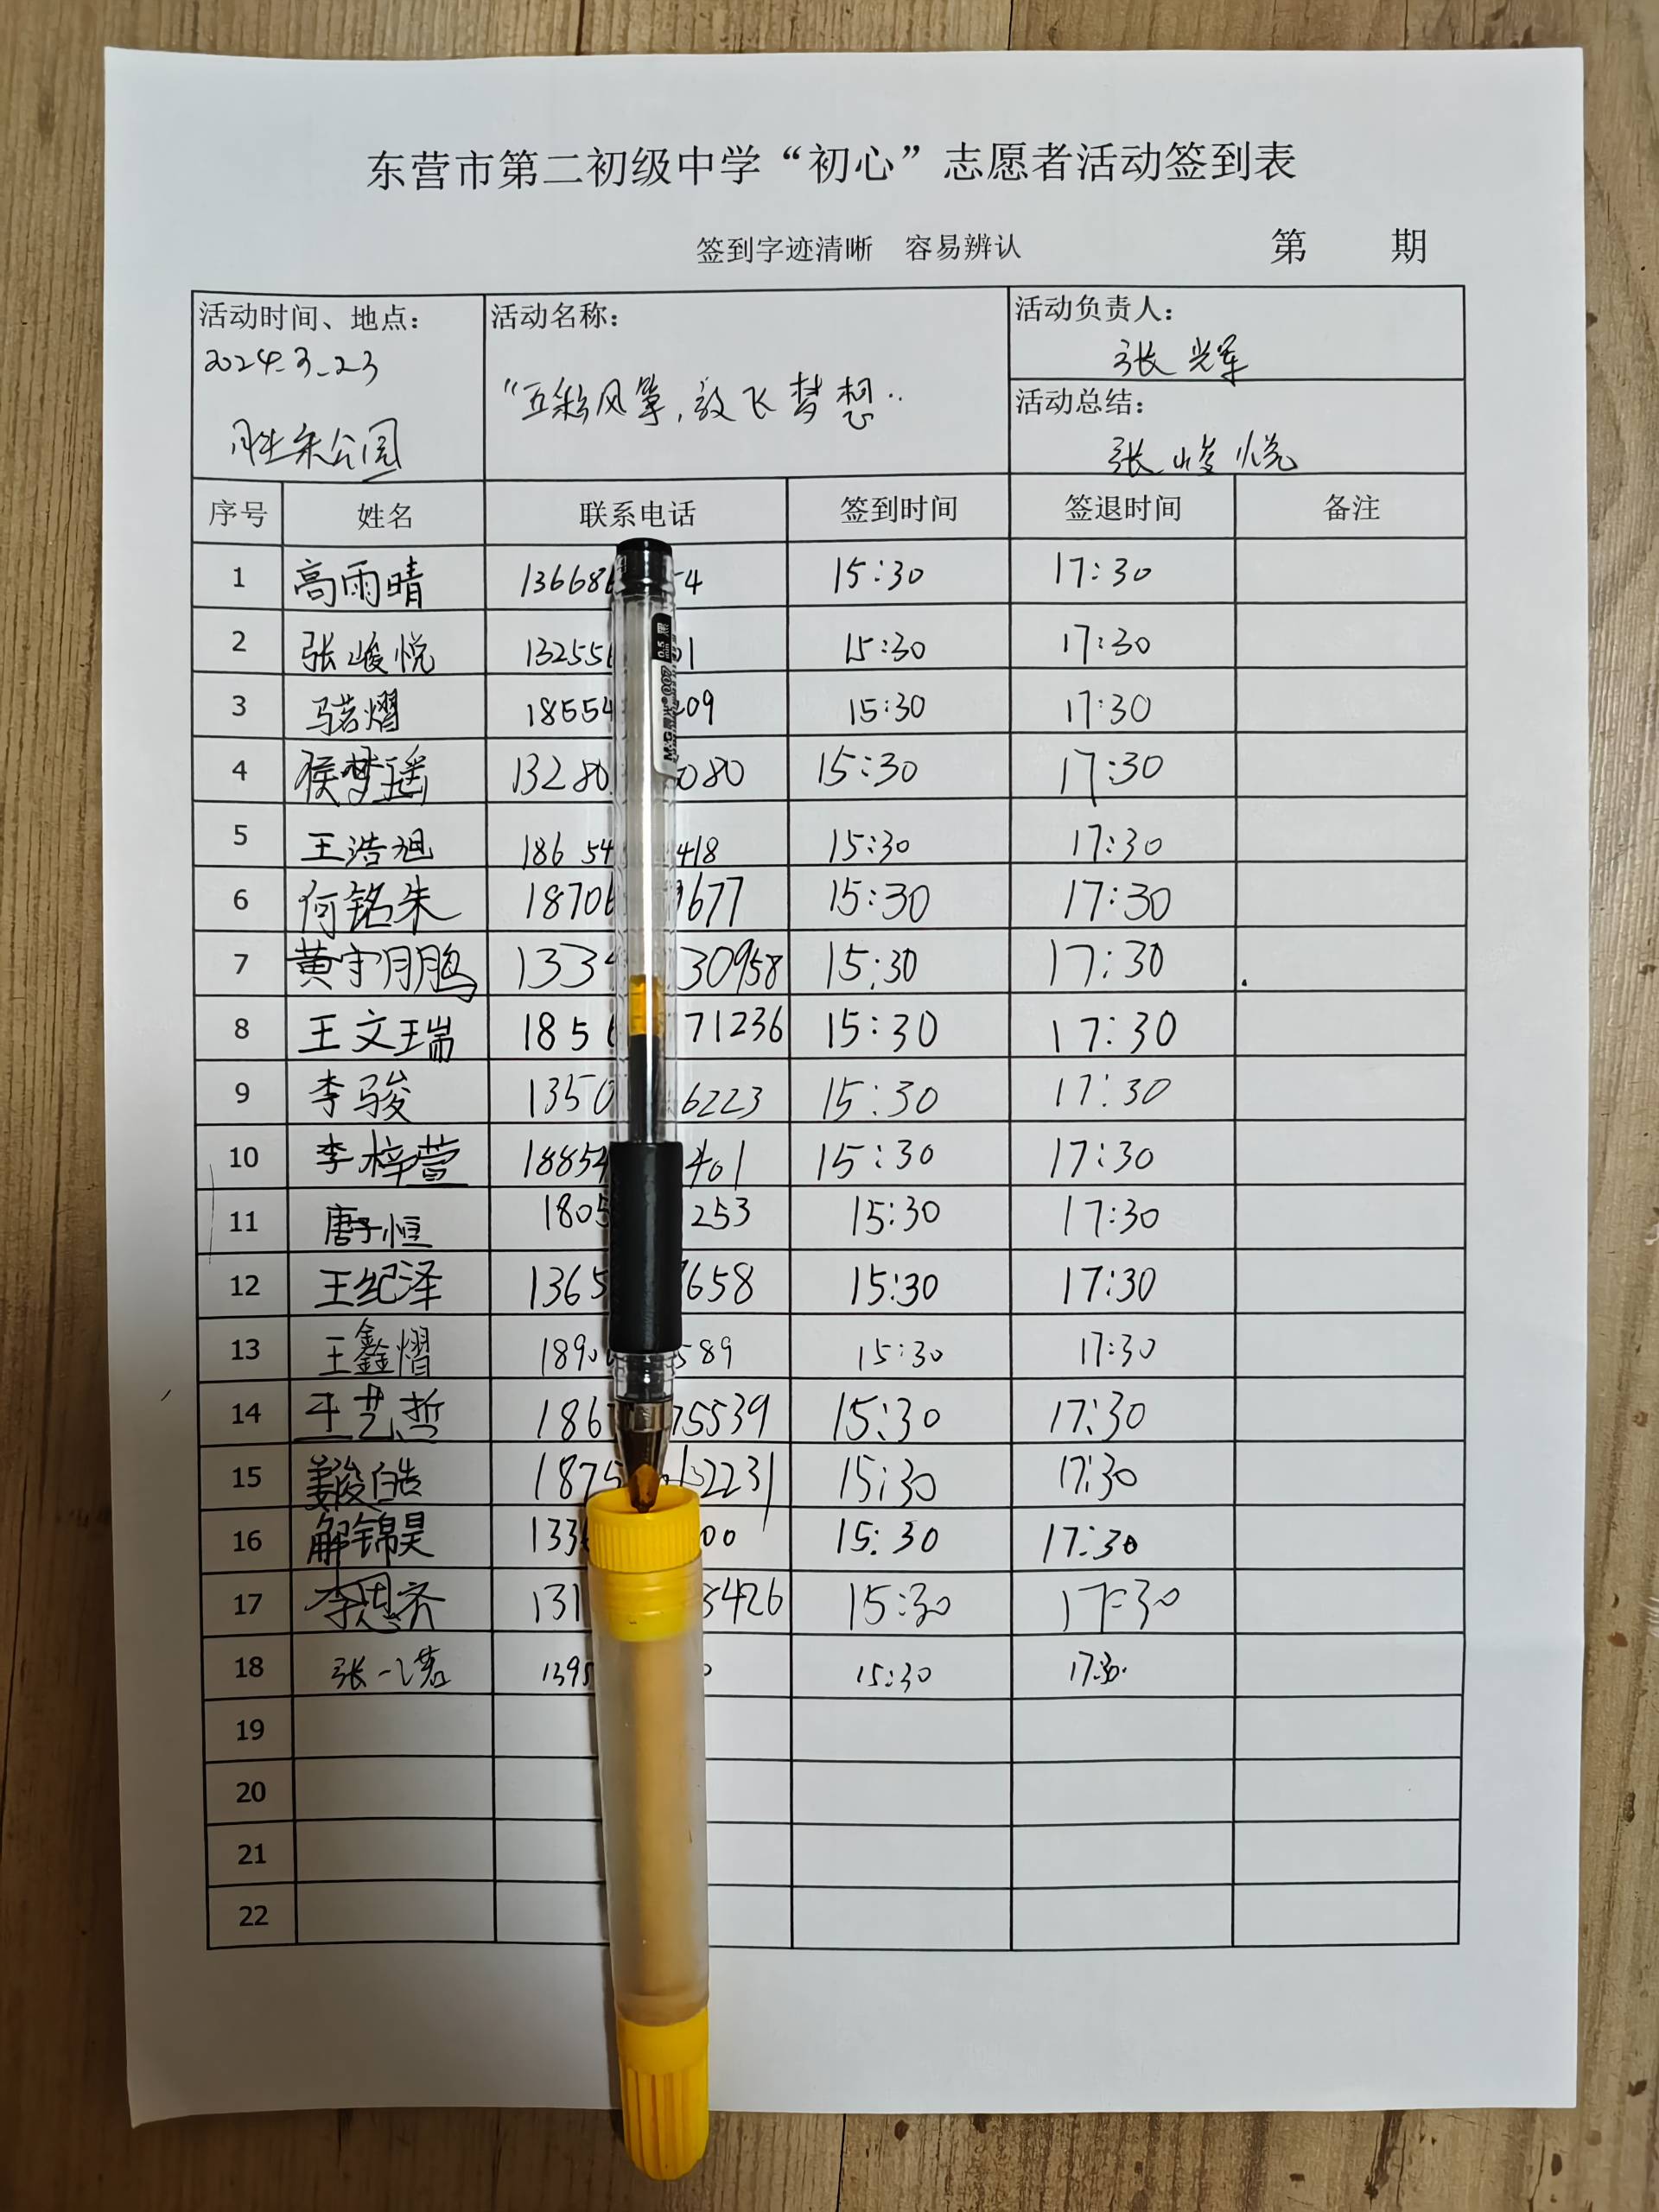 东营市第二初级中学“初心”志愿者活动签到表
签到字迹清晰 容易辨认 第 期
活动时间、地点： 活动名称： 活动负责人：
2024.3.23 张光军
“五彩风筝,放飞梦想” 活动总结：
公园 张峻悦
序号 姓名 联系电话 签到时间 签退时间 备注
1 高雨晴 13668 54 15:30 17:30
2 张峻悦 13255 01 15:30 17:30
3 马若熠 18554 09 15:30 17:30
4 侯梦瑶 13280 080 15:30 17:30
5 王浩旭 18654 418 15:30 17:30
6 何铭朱 18706 1677 15:30 17:30
7 黄宇鹏 133 30958 15:30 17:30
8 王文瑞 1856 71236 15:30 17:30
9 李骏 1350 6223 15:30 17:30
10 李梓萱 18854 401 15:30 17:30
11 唐子恒 1805 253 15:30 17:30
12 王纪泽 1365 7658 15:30 17:30
13 王鑫熠 1890 589 15:30 17:30
14 王艺哲 186 75539 15:30 17:30
15 姜俊皓 1875 2231 15:30 17:30
16 解锦昊 133 00 15:30 17:30
17 李恩齐 131 5426 15:30 17:30
18 张一诺 1395 0 15:30 17:30
19
20
21
22